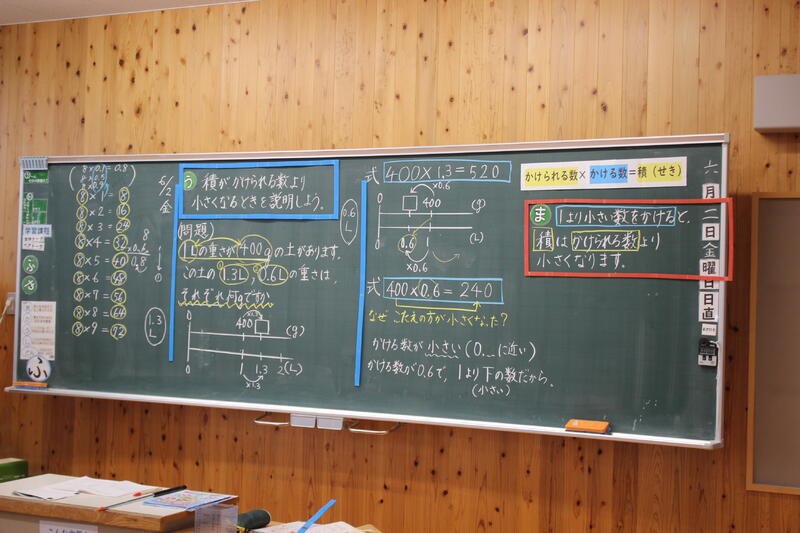 8×0.1=0.8
8×1=8
8×2=16
8×3=24
8×4=32
8×5=40
8×6=48
8×7=56
8×8=64
8×9=72
8
×0.6
1.3L
6/2
金
う 積がかけられる数より
小さくなるときを説明しよう。
(問題)
1Lの重さが400gの土があります。
この土の1.3L、0.6Lの重さは、
それぞれ何gですか
×1.3
400
(g)
0
0 1 1.3 2(L)
×1.3
0.6L
式 400×1.3=520
×0.6
400
0
(g)
0 0.6 1
(L)
×0.6
式 400×0.6=240
なぜ こたえの方が小さくなった?
かける数が 小さい (0...に近い)
かける数が0.6で、1より下の数だから。
(小さい)
かけられる数×かける数=積(せき)
ま 1より小さい数をかけると、
積はかけられる数より
小さくなります。
六月二日金曜日
日直
学習課程
ふ
き
ふ